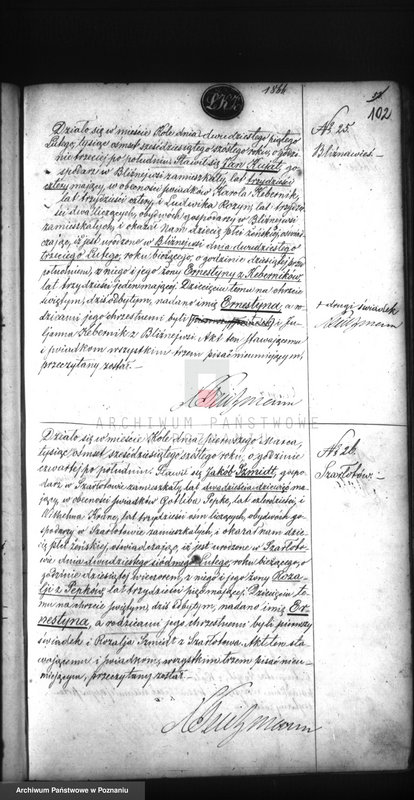 1866
102
Nº 25.
Bliźnawieś
Działo się w mieście Kole dnia dwudziestego piątego
Lutego, tysiąc ośmset sześćdziesiątego szóstego roku, o godzi-
nie trzeciej po południu. Stawił się Jan
gospo-
darz w Bliźniejwsi zamieszkały, lat trzydzieści
cztery mający, w obecności świadków Karola Kebernik,
lat trzydzieści cztery, i Ludwika Rozym, lat trzydzie-
ści dwa liczących, obydwóch gospodarzy w Bliźniejwsi
zamieszkałych, i okazał Nam dziecię płci żeńskiej, oświad-
czając, iż jest urodzone w Bliźniejwsi dnia dwudziestego
trzeciego Lutego, roku bieżącego, o godzinie dziesiątej przed
południem, z niego i jego żony Ernestyny z Keberników,
lat trzydzieści jeden mającej. Dziecięciu temu na chrzcie
świętym, dziś odbytym, nadano imię Ernestyna, a ro-
dzicami jego chrzestnemi byli
i Ju-
lianna Kebernik z Bliźniejwsi. Akt ten stawającemu
i świadkom wszystkim trzem pisać nieumiejącym,
przeczytany został. —
+ drugi świadek
ARCHIWUM PAŃSTWOWE
Nº 26.
Szarłotów. —
Działo się w mieście Kole dnia pierwszego Marca,
tysiąc ośmset sześćdziesiątego szóstego roku, o godzinie
czwartej po południu. Stawił się Jakób Szmidt, gospo-
darz w Szarłotowie zamieszkały, lat dwadzieścia dziewięć ma-
jący, w obecności świadków Gotliba Pepke, lat
i
Wilhelma Krone, lat trzydzieści ośm liczących, obydwóch go-
spodarzy w Szarłotowie zamieszkałych, i okazał nam dzie-
cię płci żeńskiej, oświadczając, iż jest urodzone w Szarłoto-
wie dnia dwudziestego siódmego Lutego, roku bieżącego, o
godzinie dziesiątej wieczorem, z niego i jego żony Roza-
lji z Pepków, lat trzydzieści pięć mającej. Dziecięciu te-
mu na chrzcie świętym, dziś odbytym, nadano imię Er-
nestyna, a rodzicami jego chrzestnemi byli pierwszy
świadek i Rozalja Szmidt z Szarłotowa. Akt ten sta-
wającemu i świadkom, wszystkim trzem pisać nieu-
miejącym, przeczytany został. —
Archiwum Państwowe w Poznaniu